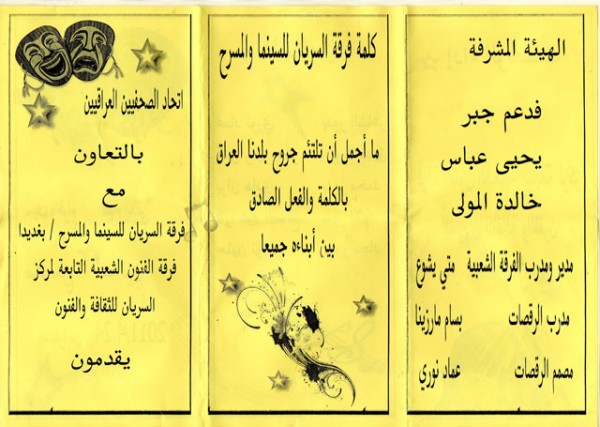 الهيئة المشرفة
فدعم جبر
يحيى عباس
خالدة المولى
مدير ومدرب الفرقة الشعبية متي يشوع
مدرب الرقصات بسام مارزينا
مصمم الرقصات عماد نوري
كلمة فرقة السريان للسينما والمسرح
ما أجمل أن تلتئم جروح بلدنا العراق
بالكلمة والفعل الصادق
بين أبناءه جميعا
اتحاد الصحفيين العراقيين
بالتعاون
مع
فرقة السريان للسينما والمسرح / بغديدا
فرقة الفنون الشعبية التابعة لمركز
السريان للثقافة والفنون
يقدمون